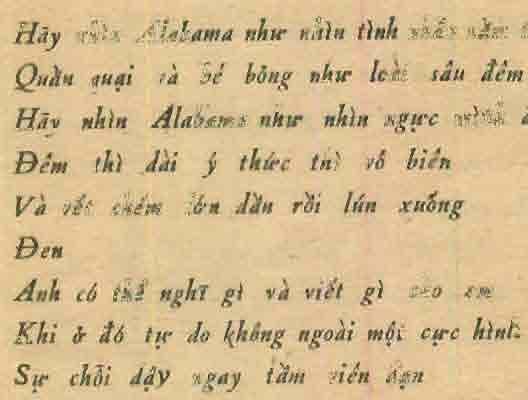 Hãy nhìn Alabama như nhìn tình
Quằn quại và bé bỏng như loài sâu đêm
Hãy nhìn Alabama như nhìn ngực mình
Đêm thì dài ý thức thì vô biên
Và vết chém lớn dần rồi lún xuống
Đen
Anh có thể nghĩ gì và viết gì cho em
Khi ở đó tự do không ngoài một cực hình
Sự chỗi dậy ngay tầm viên đạn